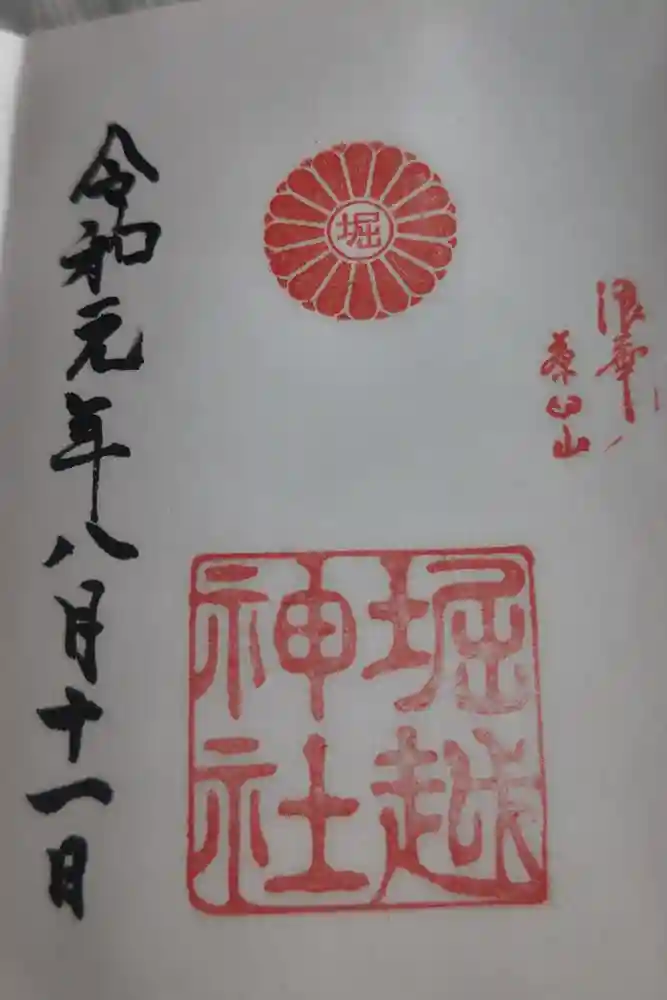 浪華
茶臼山
堀
堀越
神社
令和元年八月十一日